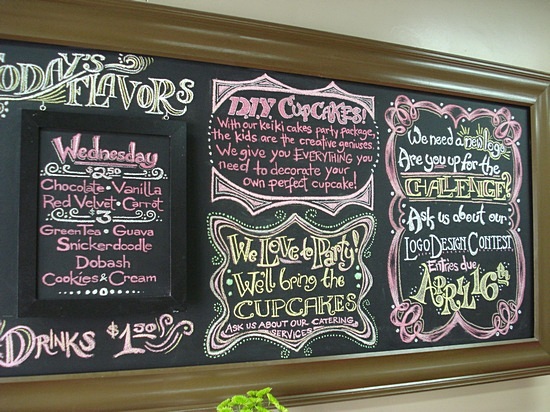 TODAY'S
FLAVORS
Wednesday
$2.50
Chocolate • Vanilla
Red Velvet • Carrot
$3
Green Tea • Guava
Snickerdoodle
Dobash
Cookies & Cream
DRINKS $1.50
DIY CUPCAKES!
With our keiki cakes party package,
the kids are the creative geniuses.
We give you EVERYTHING you
need to decorate your
own perfect cupcake!
We Love to Party!
We'll bring the
CUPCAKES
ASK US ABOUT OUR CATERING
SERVICES
We need a new logo
Are you up for the
CHALLENGE?
Ask us about our
LOGO DESIGN CONTEST
Entries due
APRIL 16th